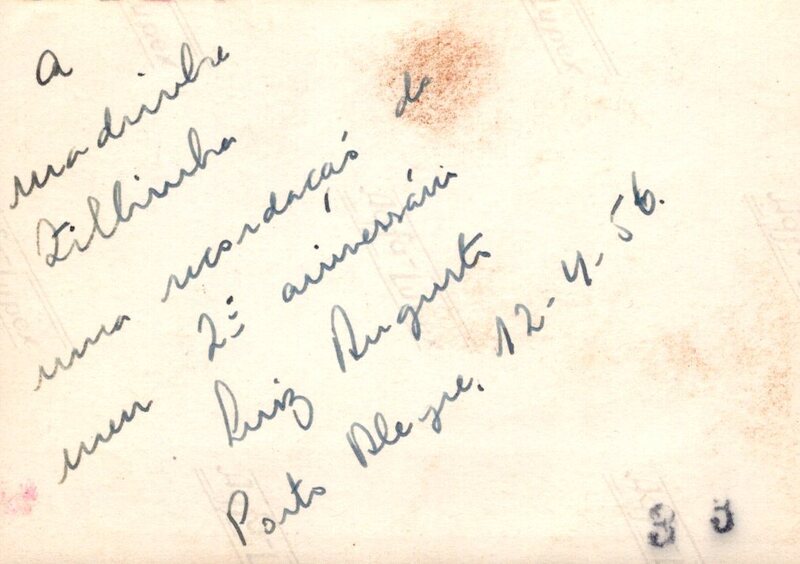 a
madrinha
Zilhinha
uma recordação do
meu 2º aniversário
Luiz Augusto
Porto Alegre, 12-4-56.